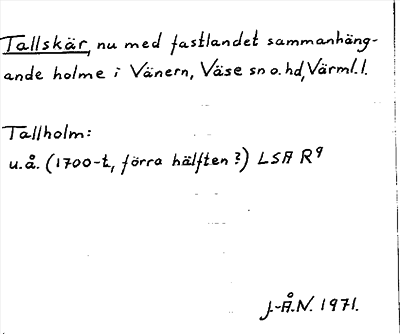 Tallskär, nu med fastlandet sammanhäng-
ande holme i Vänern, Väse sn o. hd, Värml. l.
Tallholm:
u.å. (1700-t, förra hälften?) LSA R9
J.-Å.N. 1971.